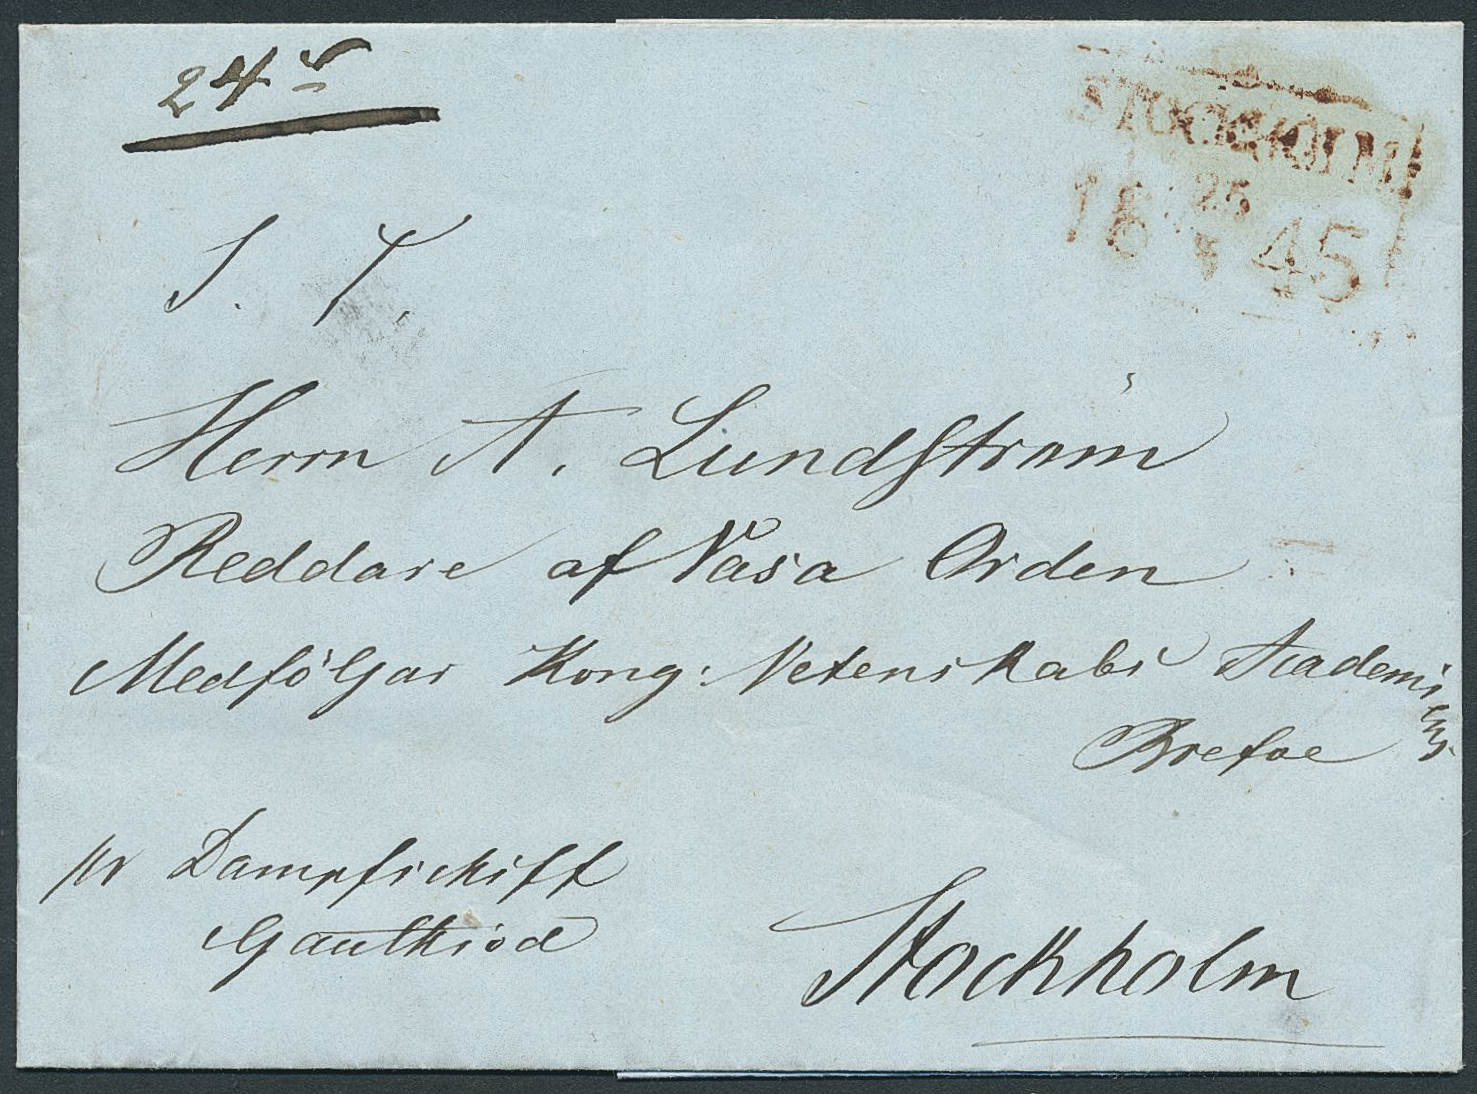 24
STOCKHOLM
18 25 45
S. T.
Herrn A. Lundström
Reddare af Vasa Orden
Medföljar Kong: Vetenskabs Academiens
Brefve
pr Dampfschiff
Gauthiod
Stockholm